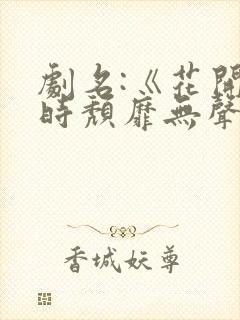 劇名:《花開
時頹靡無聲
香城妖尊